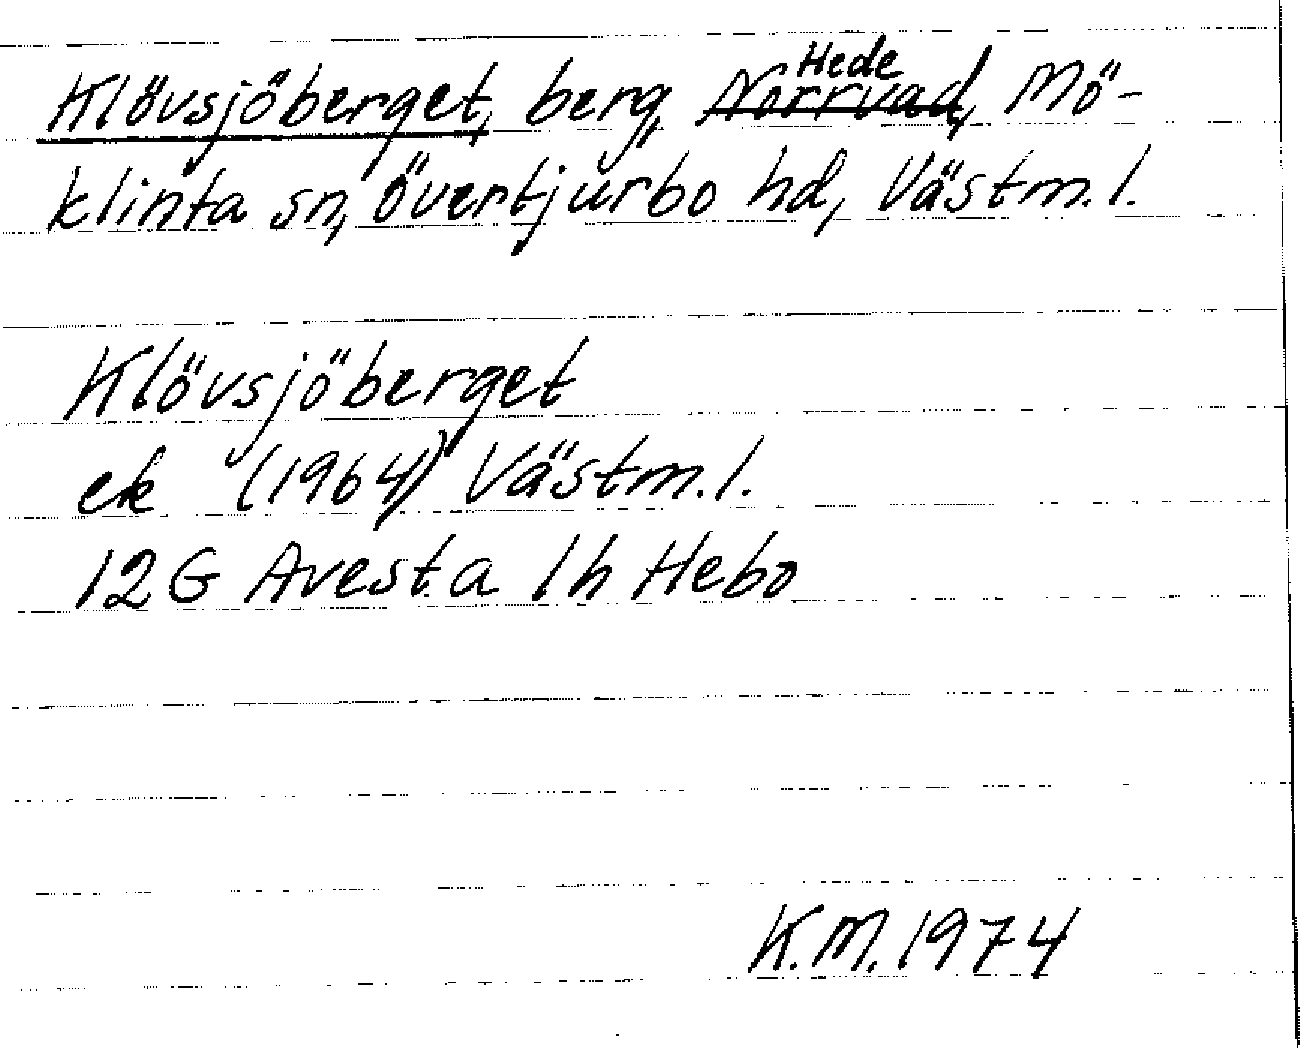 Klövsjöberget, berg, Hede Norrvad, Mö-
klinta sn, Övertjurbo hd, Västm.l.
Klövsjöberget
ek (1964) Västm.l.
12G Avesta 1h Hebo
K.M. 1974